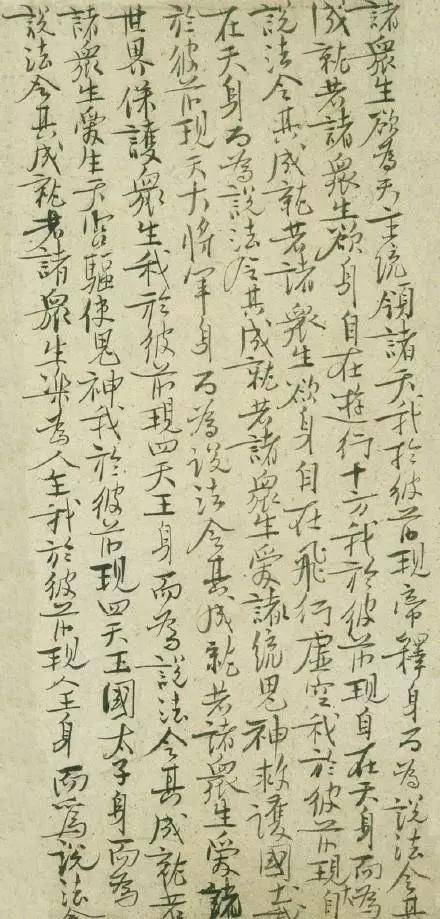 諸衆生欲為天主統領諸天我於彼前現帝釋身而為說法令其
成就若諸衆生欲身自在遊行十方我於彼前現自在天身而為
說法令其成就若諸衆生欲身自在飛行虛空我於彼前現大自
在天身而為說法令其成就若諸衆生愛諸統鬼神救護國土我
於彼前現天大將軍身而為說法令其成就若諸衆生愛諸
世界保護衆生我於彼前現四天王身而為說法令其成就若
諸衆生愛生天宮驅使鬼神我於彼前現四天王國太子身而為
說法令其成就若諸衆生樂為人主我於彼前現人王身而為說法令